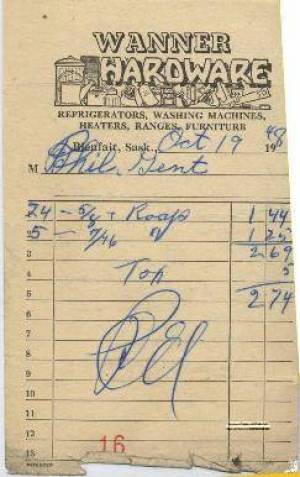 WANNER
HARDWARE
REFRIGERATORS, WASHING MACHINES,
HEATERS, RANGES, FURNITURE
Bienfait, Sask., Oct 19 1948
M Phil. Gent
24 - 5/8 + Roap 1 44
2 5 - 7/16 " 1 25
3 2 69
4 Tax 5
5 2 74
6
7
8
9
10
11
12
13
16